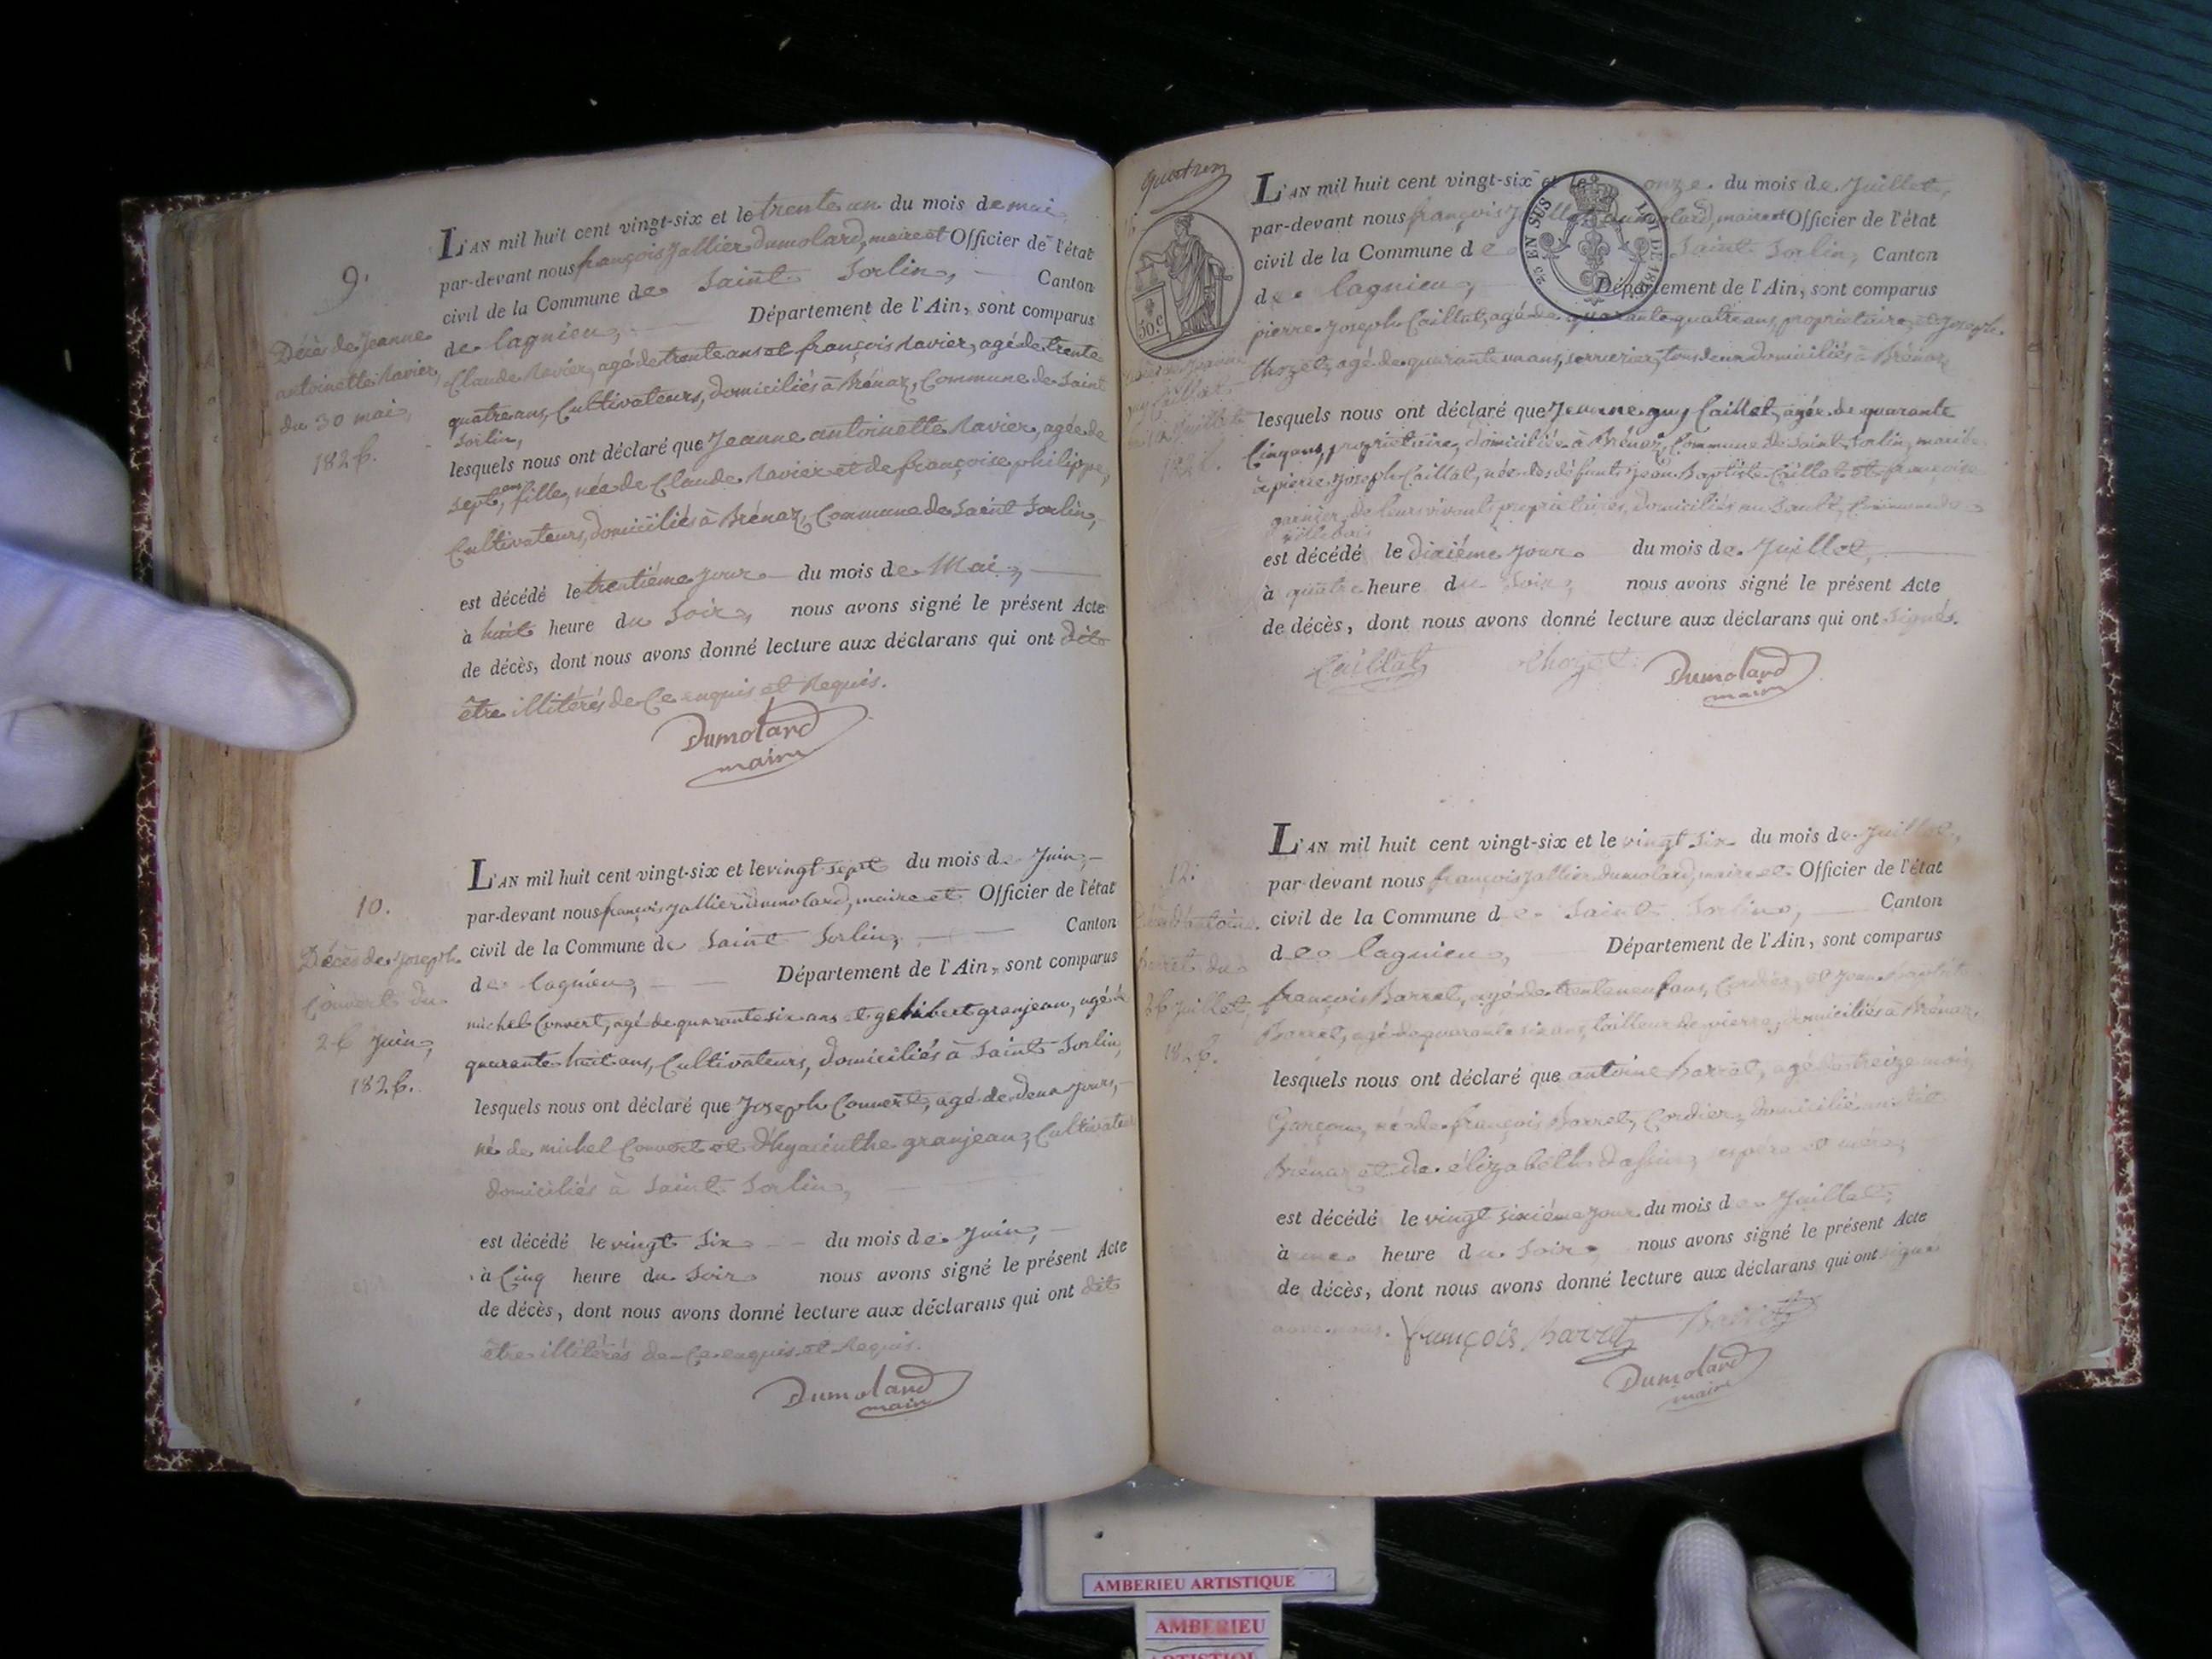 9.
Décès de Jeanne
antoinette Ravier,
du 30 mai,
1826.
L'AN mil huit cent vingt-six et le trente un du mois de mai,
par-devant nous françois Jallier Dumolard, maire et Officier de l'état
civil de la Commune de Saint Sorlin, Canton
de lagnieu, Département de l'Ain, sont comparus
Claude Ravier, agé de trente ans et françois Ravier, agé de trente
quatre ans, Cultivateurs, domiciliés à Brénaz, Commune de Saint
Sorlin,
lesquels nous ont déclaré que Jeanne antoinette Ravier, agée de
sept ans, fille, née de Claude Ravier et de françoise philippe,
Cultivateurs, domiciliés à Brénaz, Commune de Saint Sorlin,
est décédé le trentiéme jour du mois de Mai,
à huit heure du Soir, nous avons signé le présent Acte
de décès, dont nous avons donné lecture aux déclarans qui ont dit
être illitérés de Ce enquis et Requis.
Dumolard
maire
10.
Décès de Joseph
Convert du
26 Juin,
1826.
L'AN mil huit cent vingt-six et le vingt sept du mois de Juin,
par-devant nous françois Jallier Dumolard, maire et Officier de l'état
civil de la Commune de Saint Sorlin, Canton
de lagnieu, Département de l'Ain, sont comparus
michel Convert, agé de quarante six ans et granjean, agé de
quarante huit ans, Cultivateurs, domiciliés à Saint Sorlin,
lesquels nous ont déclaré que Joseph Convert, agé de deux jours,
né de michel Convert et d'hyacinthe granjean, Cultivateurs
domiciliés à Saint Sorlin,
est décédé le vingt Six du mois de Juin,
à Cinq heure du Soir nous avons signé le présent Acte
de décès, dont nous avons donné lecture aux déclarans qui ont dit
être illitérés de Ce enquis et Requis.
Dumolard
maire
50 c
25c EN SUS LOI DE
Juillet
1826.
L'AN mil huit cent vingt-six et le onze du mois de Juillet,
par-devant nous françois Jallier Dumolard, maire et Officier de l'état
civil de la Commune de Saint Sorlin, Canton
de lagnieu, Département de l'Ain, sont comparus
pierre Joseph Caillat, agé de quarante quatre ans, propriétaire, et Joseph
thozet, agé de quarante un ans, serrurier, tous deux domiciliés à Brénaz
lesquels nous ont déclaré que Jeanne guy Caillat, agée de quarante
Cinq ans, propriétaire, domiciliée à Brénaz, Commune de Saint Sorlin, mariée
à pierre Joseph Caillat, née des défunts Jean Baptiste Caillat et françoise
garnier, de leurs vivants propriétaires, domiciliés au Sault, Commune de
villebois
est décédé le dixiéme jour du mois de Juillet,
à quatre heure du Soir, nous avons signé le présent Acte
de décès, dont nous avons donné lecture aux déclarans qui ont signés.
Caillat thozet Dumolard
maire
12.
Barret du
26 Juillet,
1826.
L'AN mil huit cent vingt-six et le vingt six du mois de Juillet,
par-devant nous françois Jallier Dumolard, maire et Officier de l'état
civil de la Commune de Saint Sorlin, Canton
de lagnieu, Département de l'Ain, sont comparus
françois Barret, agé de trente neuf ans, Cordier, et Jean Baptiste
Barret, agé de quarante six ans, tailleur de pierre, domiciliés à Brénaz,
lesquels nous ont déclaré que antoine Barret, agé de treize mois,
Garçon, né de françois Barret, Cordier, domicilié au dit
Brénaz et de élizabeth père et mère,
est décédé le vingt sixiéme jour du mois de Juillet,
à une heure du Soir, nous avons signé le présent Acte
de décès, dont nous avons donné lecture aux déclarans qui ont signé
avec nous. françois Barret Barret
Dumolard
maire
AMBERIEU ARTISTIQUE
AMBERIEU
ARTISTIQUE